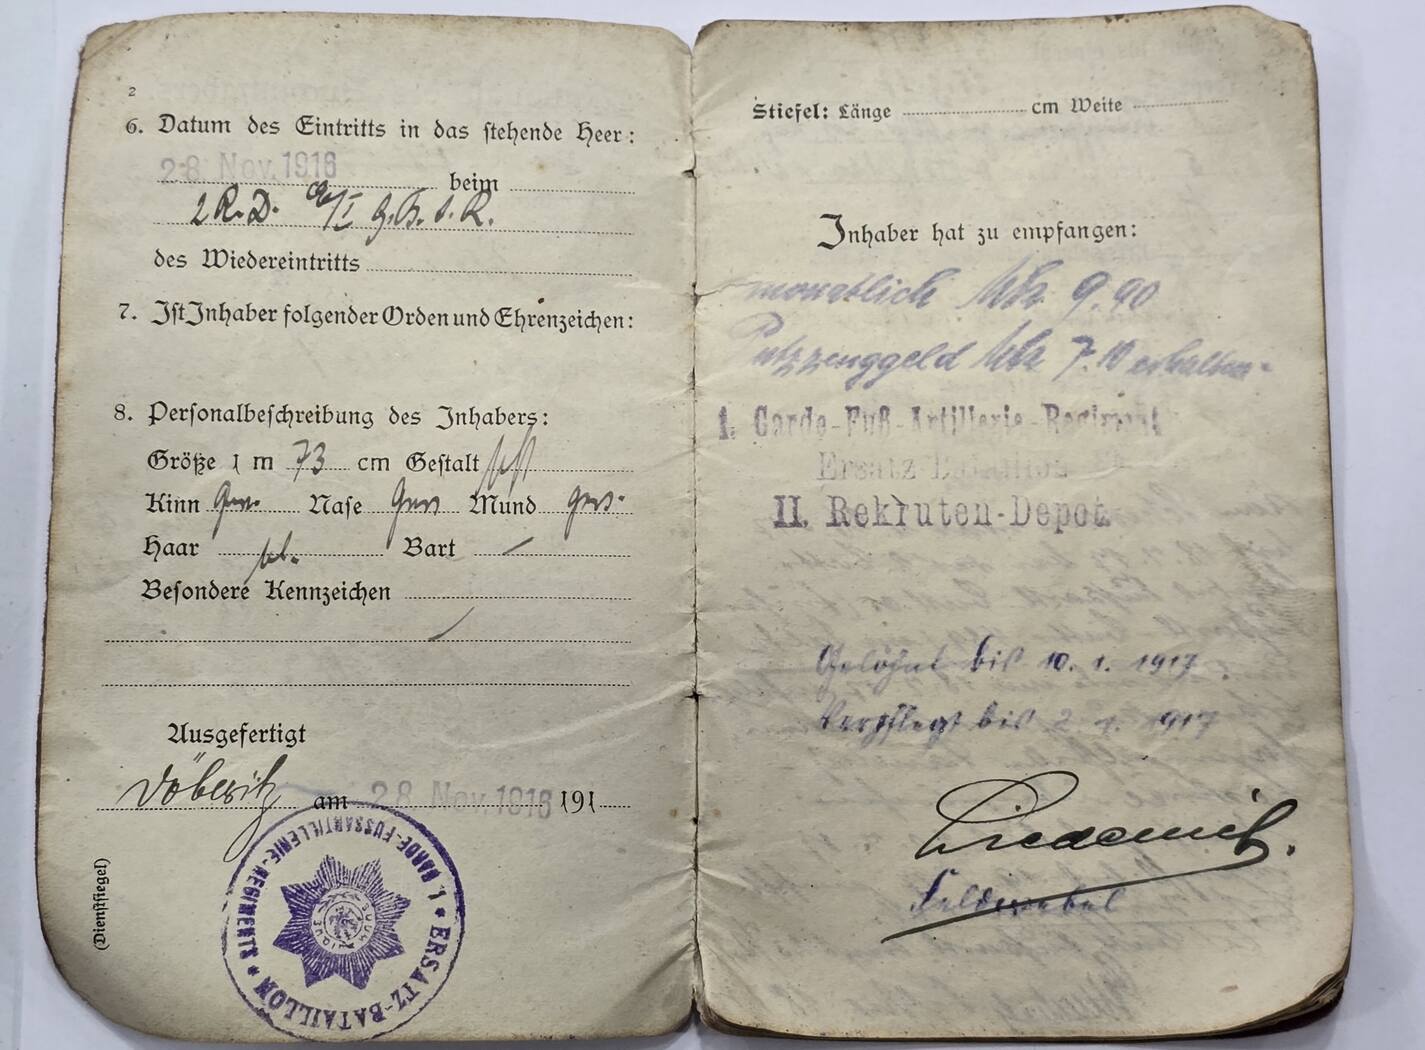 2
6. Datum des Eintritts in das stehende Heer:
28. Nov. 1916 beim
2 R.D. I G. B. d. R.
des Wiedereintritts
7. Ist Inhaber folgender Orden und Ehrenzeichen:
8. Personalbeschreibung des Inhabers:
Größe 1 m 73 cm Gestalt
Kinn gew. Nase gew. Mund gew.
Haar bl. Bart –
Besondere Kennzeichen
–
Ausgefertigt
Döberitz am 28. Nov. 1916 191
(Dienstsiegel)
1. GARDE-FUSSARTILLERIE-REGIMENTS * ERSATZ-BATAILLON *
SUUM CUIQUE
Stiefel: Länge cm Weite
Inhaber hat zu empfangen:
monatlich Mk. 9.90
Putzzeuggeld Mk 7.10 erhalten.
1. Garde-Fuß-Artillerie-Regiment
Ersatz-Bataillon
II. Rekruten-Depot
Gelöhnt bis 10. 1. 1917.
Verpflegt bis 2. 1. 1917
Feldwebel